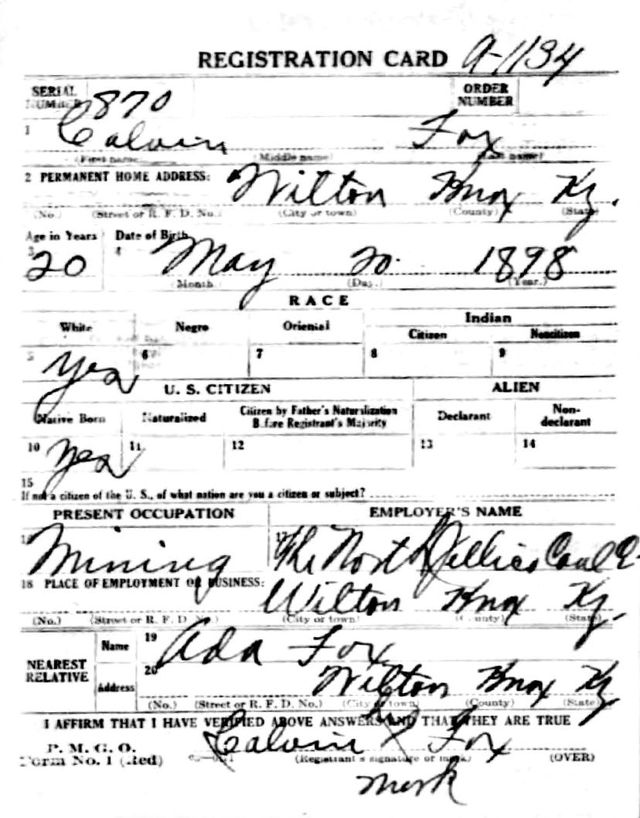 REGISTRATION CARD A-1134
SERIAL NUMBER 870 ORDER NUMBER
1 Calvin Fox
(First name) (Middle name) (Last name)
2 PERMANENT HOME ADDRESS: Wilton Knox Ky.
(No.) (Street or R. F. D. No.) (City or town) (County) (State)
Age in Years Date of Birth
3 20 4 May 20 1898
(Month) (Day.) (Year.)
RACE
White Negro Oriental Indian
Citizen Noncitizen
5 Yes 6 7 8 9
U. S. CITIZEN ALIEN
Native Born Naturalized Citizen by Father's Naturalization Before Registrant's Majority Declarant Non-declarant
10 Yes 11 12 13 14
15
If not a citizen of the U. S., of what nation are you a citizen or subject?
PRESENT OCCUPATION EMPLOYER'S NAME
Mining The North Jellico Coal
18 PLACE OF EMPLOYMENT OR BUSINESS:
Wilton Knox Ky.
(No.) (Street or R. F. D. No.) (City or town) (County) (State)
NEAREST RELATIVE Name 19 Ada Fox
Address 20 Wilton Knox Ky
(No.) (Street or R. F. D. No.) (City or town) (County) (State)
I AFFIRM THAT I HAVE VERIFIED ABOVE ANSWERS AND THAT THEY ARE TRUE
P. M. G. O.
Form No. 1 (Red) Calvin X Fox
(Registrant's signature or mark) (OVER)
mark